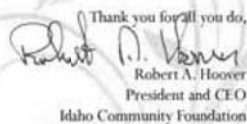 Thank you for all you do,
Robert A. Hoover
President and CEO
Idaho Community Foundation